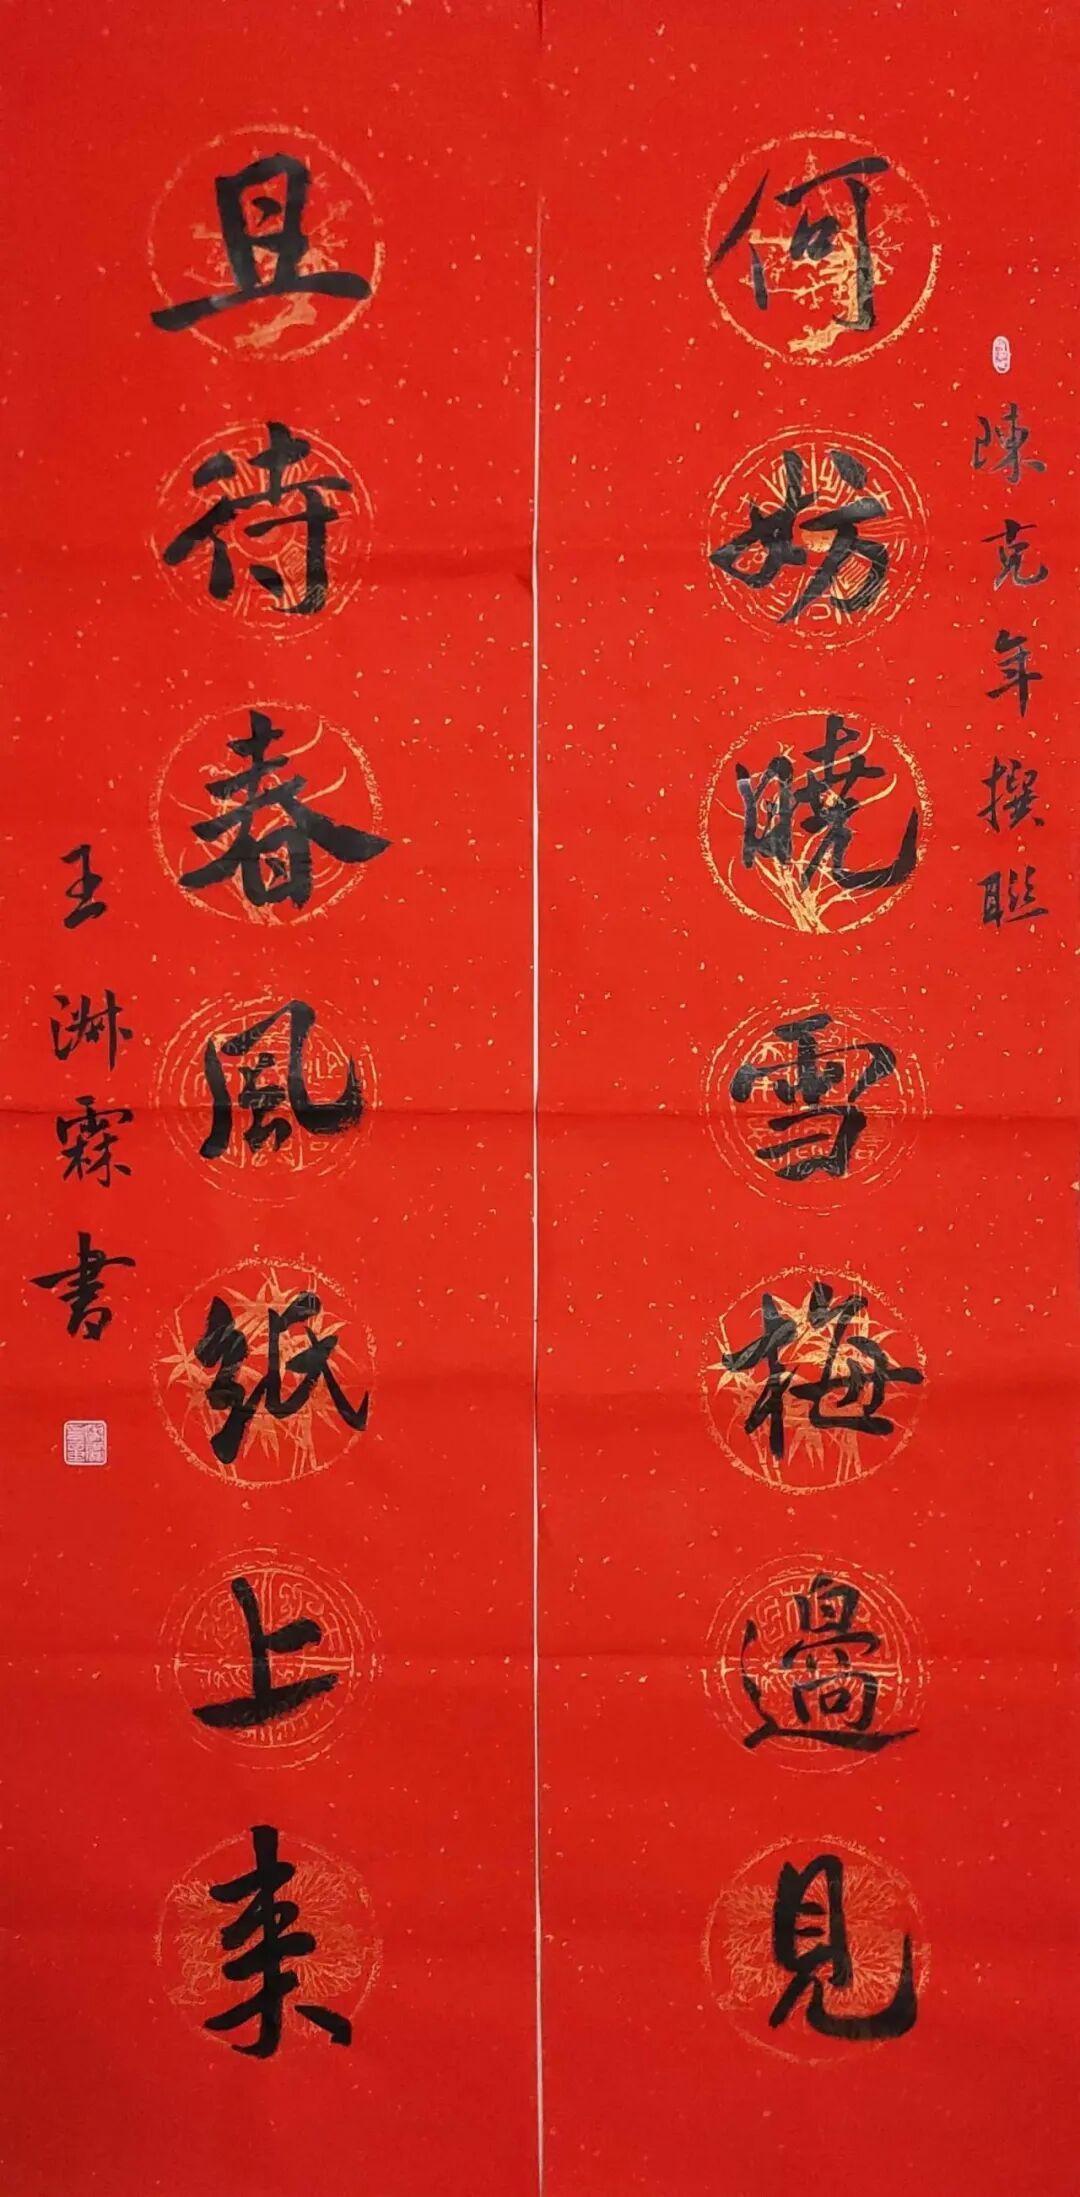 陳克年撰聯
何妨曉雪梅邊見
且待春風紙上来
王淋霖書